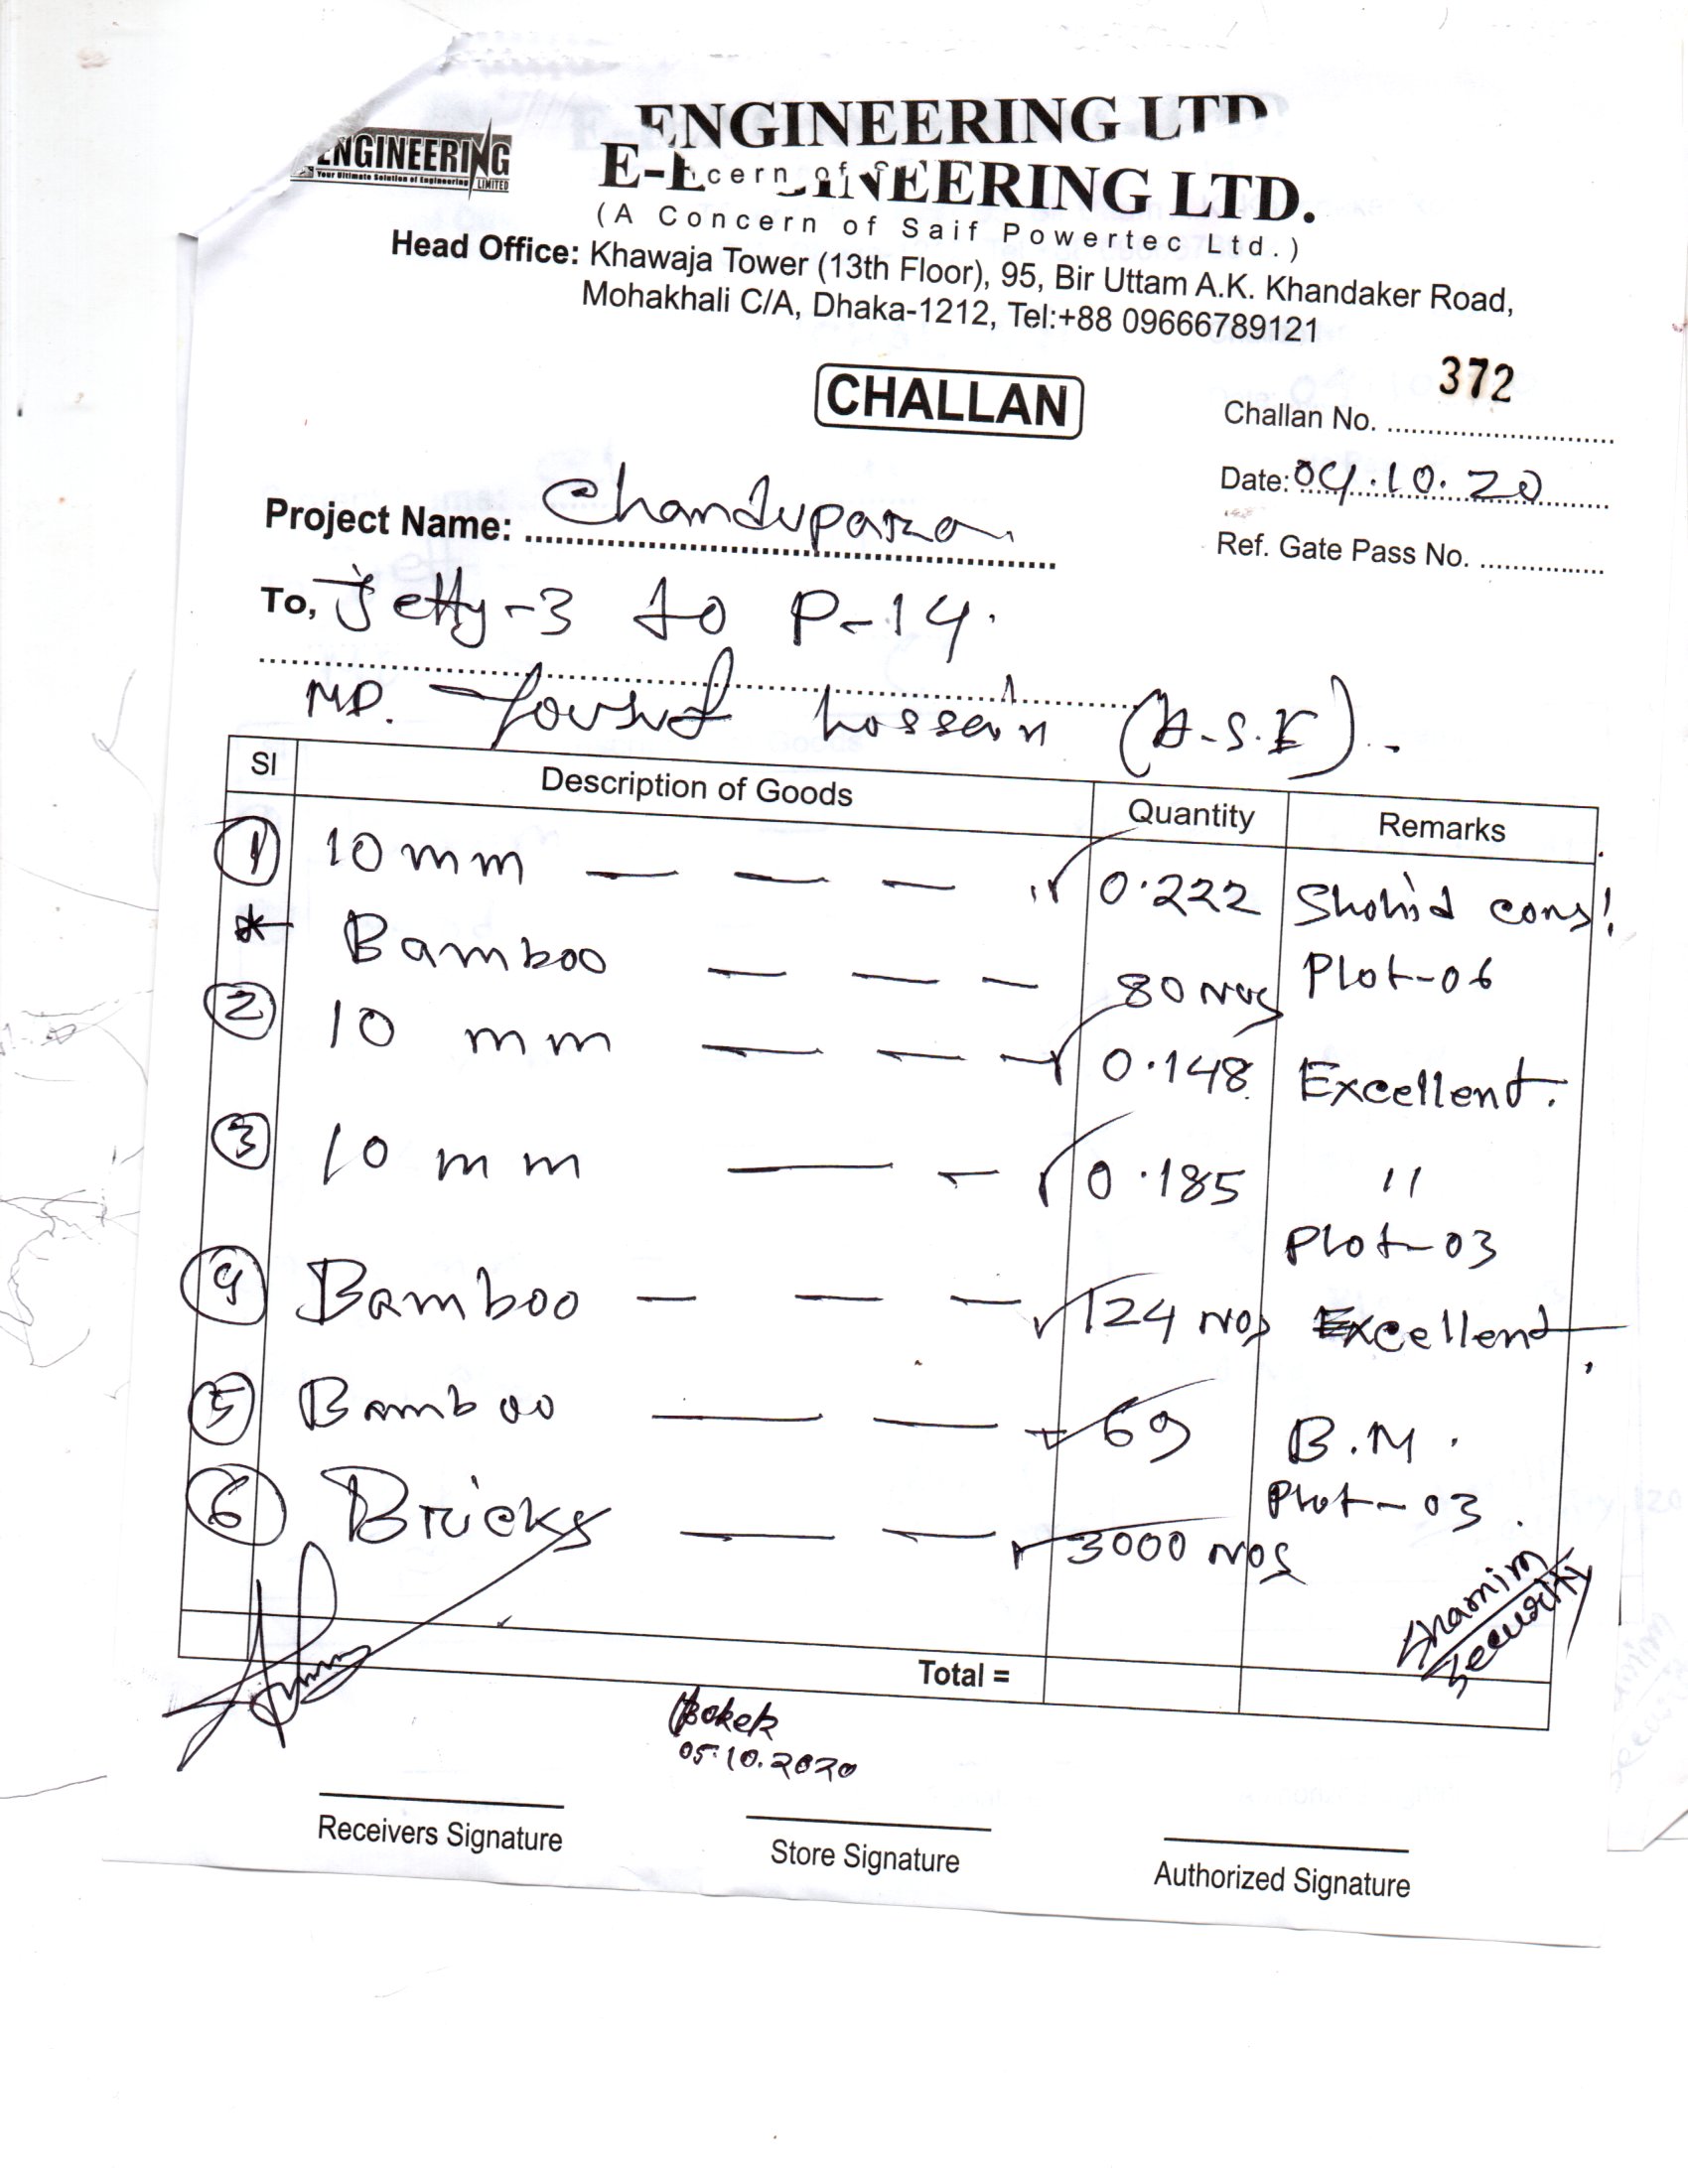 ENGINEERING LTD
ENGINEERING
Your Ultimate Solution of Engineering LIMITED
E-E GINEERING LTD.
cern of S
(A Concern of Saif Powertec Ltd.)
Head Office: Khawaja Tower (13th Floor), 95, Bir Uttam A.K. Khandaker Road,
Mohakhali C/A, Dhaka-1212, Tel:+88 09666789121
CHALLAN
372
Challan No.
Date: 04.10.20
Project Name: Chandupara
Ref. Gate Pass No.
To, Jetty-3 to P-14.
MD. Yousuf hossain (A.S.E).
Sl Description of Goods Quantity Remarks
1 10 mm — — — 0.222 Shohid cons!
* Bamboo — — — 80 Nos Plot-06
2 10 mm — — — 0.148 Excellent.
3 10 mm — — 0.185 "
Plot-03
4 Bamboo — — — 124 Nos Excellent
5 Bamboo — — 69 B.M.
Plot-03.
6 Bricks — — 3000 Nos
Shamim
Security
Total =
05.10.2020
Receivers Signature
Store Signature
Authorized Signature